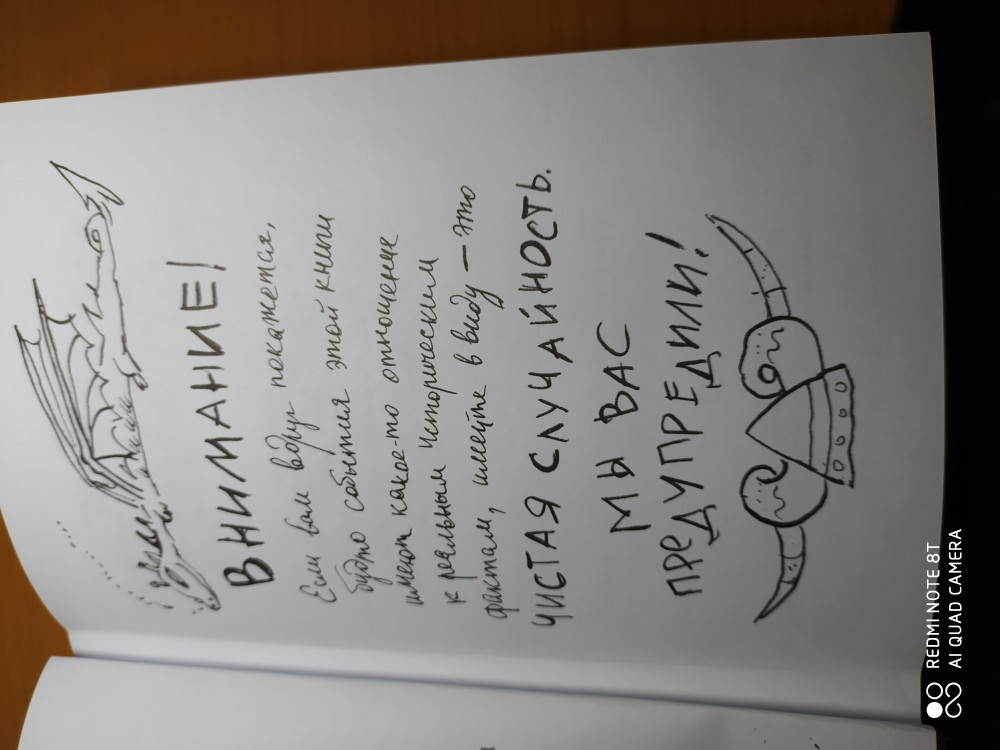 ВНИМАНИЕ!
Если вам вдруг покажется,
будто события этой книги
имеют какое-то отношение
к реальным историческим
фактам, имейте в виду — это
ЧИСТАЯ СЛУЧАЙНОСТЬ.
МЫ ВАС
ПРЕДУПРЕДИЛИ!
REDMI NOTE 8T
AI QUAD CAMERA